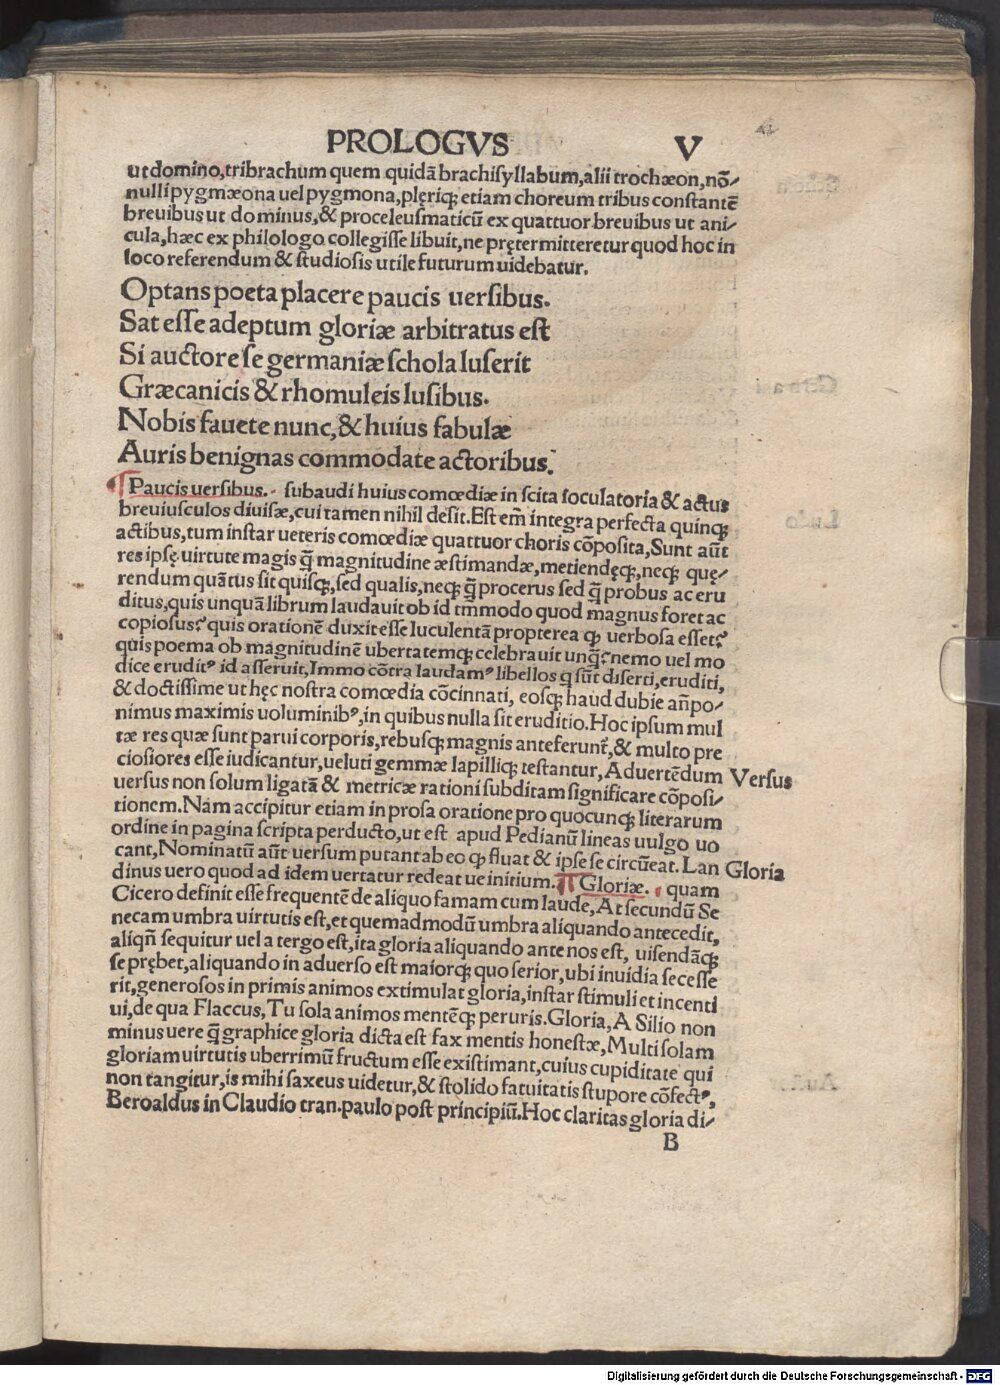 PROLOGVS V
ut domino, tribrachum quem quidā brachisyllabum, alii trochæon, nō/
nulli pygmæona uel pygmona, plęriq; etiam choreum tribus constantē
breuibus ut dominus, & proceleusmaticū ex quattuor breuibus ut ani/
cula, hæc ex philologo collegisse libuit, ne prętermitteretur quod hoc in
loco referendum & studiosis utile futurum uidebatur.
Optans poeta placere paucis uersibus.
Sat esse adeptum gloriæ arbitratus est
Si auctore se germaniæ schola luserit
Græcanicis & rhomuleis lusibus.
Nobis fauete nunc, & huius fabulæ
Auris benignas commodate actoribus.
¶ Paucis uersibus. subaudi huius comœdiæ in scita ioculatoria & actus
breuiusculos diuisæ, cui tamen nihil desit. Est em̄ integra perfecta quinq;
actibus, tum instar ueteris comœdiæ quattuor choris cōposita, Sunt aūt
res ipsę uirtute magis q̄ magnitudine æstimandæ, metiendęq;, neq; quę/
rendum quātus sit quisq;, sed qualis, neq; q̄ procerus sed q̄ probus ac eru
ditus, quis unquā librum laudauit ob id tm̄modo quod magnus foret ac
copiosus? quis orationē duxit esse luculentā propterea ꝙ uerbosa esset?
quis poema ob magnitudinē ubertatemq; celebrauit unq̄? nemo uel mo
dice eruditꝰ id asseruit, Immo cōtra laudamꝰ libellos q sūt diserti, eruditi,
& doctissime ut hęc nostra comœdia cōcinnati, eosq; haud dubie an̄po/
nimus maximis uoluminibꝰ, in quibus nulla sit eruditio. Hoc ipsum mul
tæ res quæ sunt parui corporis, rebusq; magnis anteferunt᷑, & multo pre
ciosiores esse iudicantur, ueluti gemmæ lapilliq; testantur, Aduertēdum Versus
uersus non solum ligatā & metricæ rationi subditam significare cōposi/
tionem. Nam accipitur etiam in prosa oratione pro quocunq; literarum
ordine in pagina scripta perducto, ut est apud Pedianū lineas uulgo uo
cant, Nominatū aūt uersum putant ab eo ꝙ fluat & ipse se circūeat. Lan Gloria
dinus uero quod ad idem uertatur redeat ue initium. ¶ Gloriæ. quam
Cicero definit esse frequentē de aliquo famam cum laude, At secundū Se
necam umbra uirtutis est, et quemadmodū umbra aliquando antecedit,
aliqn̄ sequitur uel a tergo est, ita gloria aliquando ante nos est, uisendāq;
se prębet, aliquando in aduerso est maiorq; quo serior, ubi inuidia secesse
rit, generosos in primis animos extimulat gloria, instar stimuli et incenti
ui, de qua Flaccus, Tu sola animos mentēq; peruris. Gloria, A Silio non
minus uere q̄ graphice gloria dicta est fax mentis honestæ, Multi solam
gloriam uirtutis uberrimū fructum esse existimant, cuius cupiditate qui
non tangitur, is mihi saxeus uidetur, & stolido fatuitatis stupore cōfectꝰ,
Beroaldus in Claudio tran. paulo post principiū. Hoc claritas gloria di/
B
Digitalisierung gefördert durch die Deutsche Forschungsgemeinschaft - DFG